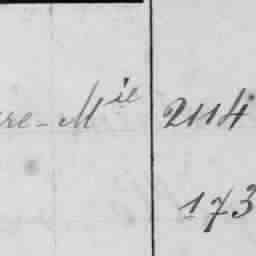 re-Mie 2114
173